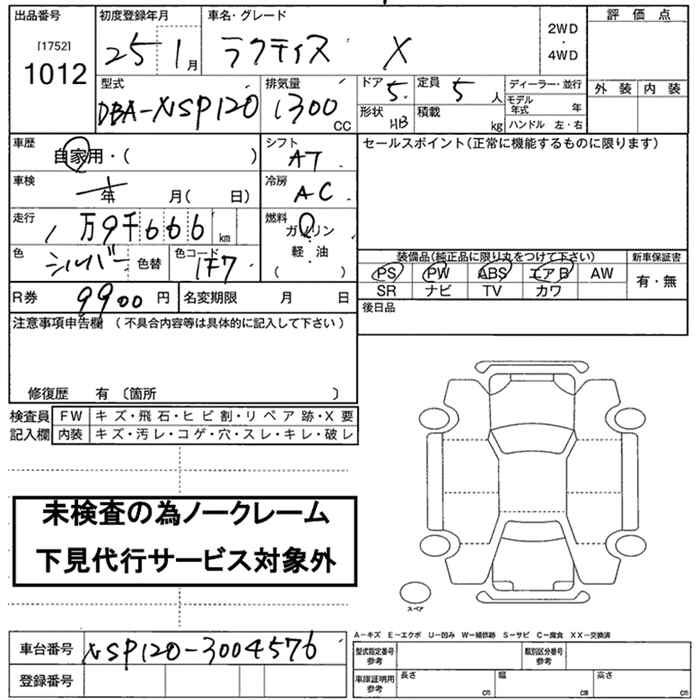 出品番号 初度登録年月 車名・グレード 評価点
[1752]
1012 25 1月 ラクティス X 2WD・4WD
型式 排気量 ドア 定員 ディーラー・並行 外装 内装
DBA-NSP120 1300CC 5 5人 モデル年式 年
形状 HB 積載 kg ハンドル 左・右
車歴 自家用・( ) シフト AT セールスポイント(正常に機能するものに限ります)
車検 年 月( 日) 冷房 AC
走行 1万9千666km 燃料 ガソリン
軽油
( )
色 シルバー 色替 色コード 1F7
装備品(純正品に限り丸をつけて下さい) 新車保証書
PS PW ABS エアB AW 有・無
SR ナビ TV カワ
R券 9900円 名変期限 月 日 後日品
注意事項申告欄 (不具合内容等は具体的に記入して下さい)
修復歴 有 〔箇所 〕
検査員 FW キズ・飛石・ヒビ割・リペア跡・X要
記入欄 内装 キズ・汚レ・コゲ・穴・スレ・キレ・破レ
未検査の為ノークレーム
下見代行サービス対象外
スペア
A-キズ E-エクボ U-凹み W-補修跡 S-サビ C-腐食 XX-交換済
車台番号 NSP120-3004576 型式指定番号参考 類別区分番号参考
登録番号 車庫証明用参考 長さ cm 幅 cm 高さ cm